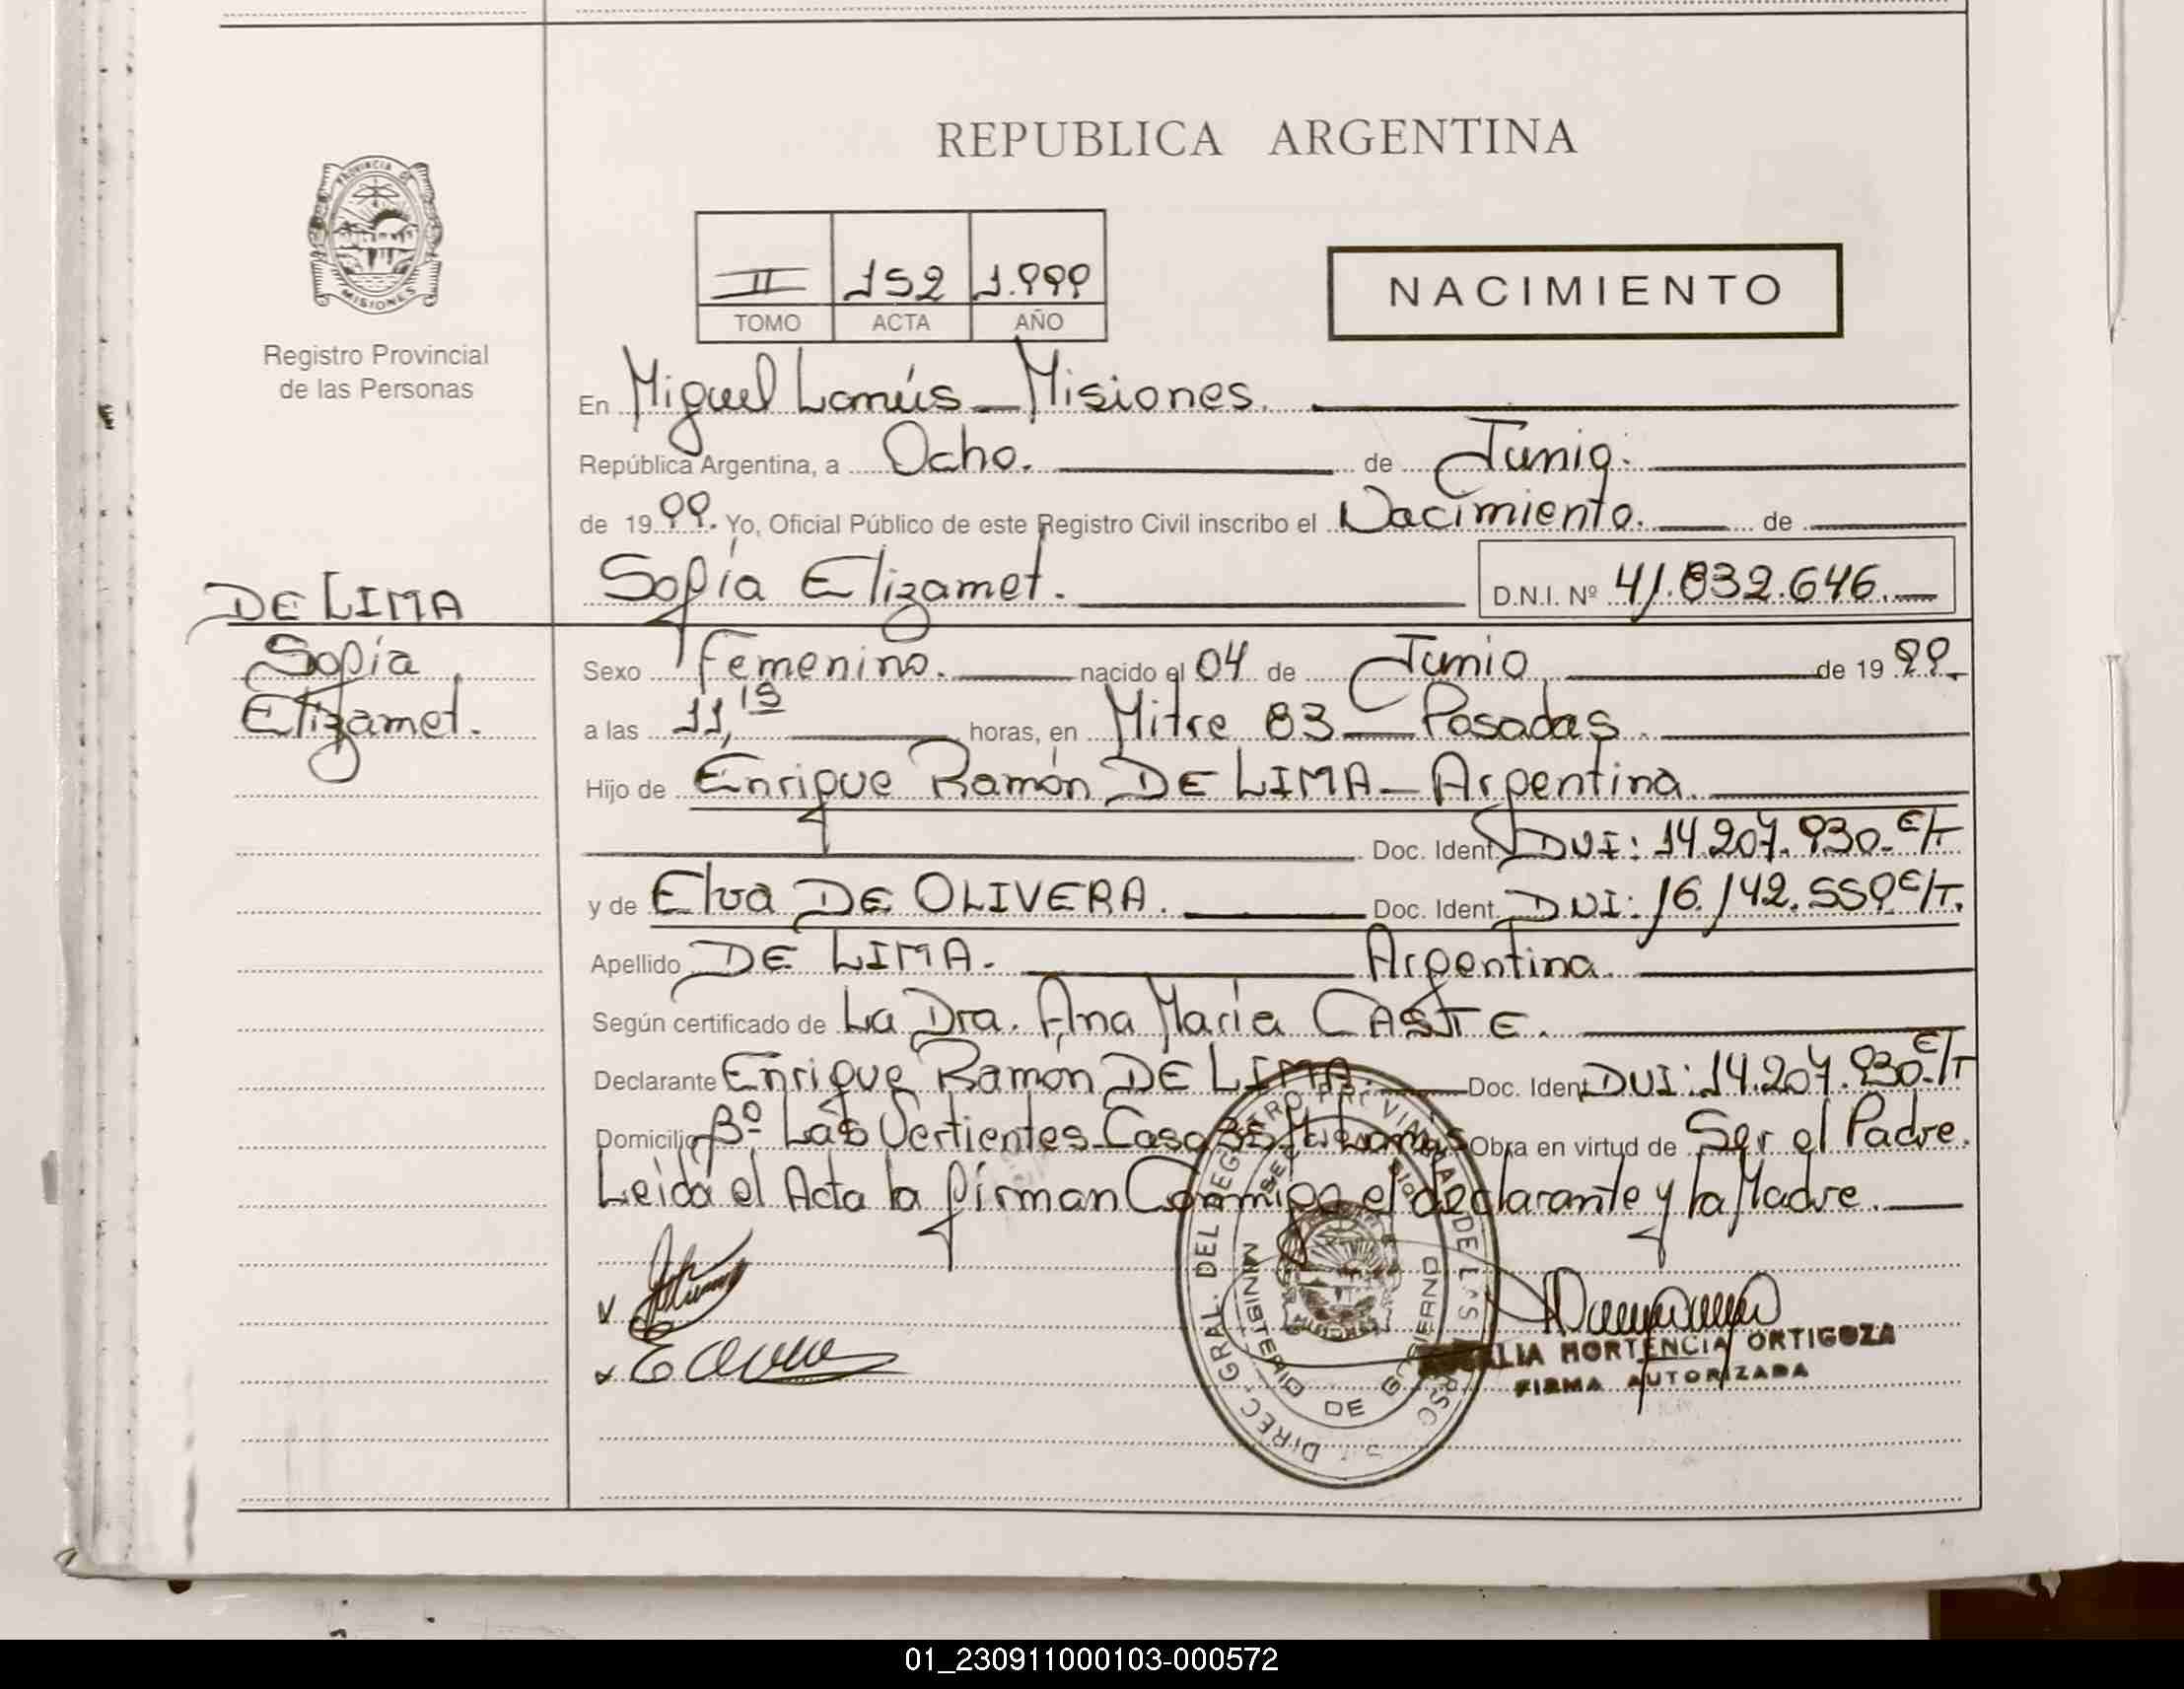 REPUBLICA ARGENTINA
PROVINCIA DE
MISIONES
Registro Provincial
de las Personas
II 152 1.999
TOMO ACTA AÑO
NACIMIENTO
En Miguel Lanús - Misiones.
República Argentina, a Ocho. de Junio.
de 1999. Yo, Oficial Público de este Registro Civil inscribo el Nacimiento. de
Sofía Elizamet. D.N.I. Nº 41.832.646.
DE LIMA
Sofía
Elizamet.
Sexo Femenino. nacido el 04 de Junio de 1999.
a las 11,15 horas, en Mitre 83 - Posadas.
Hijo de Enrique Ramón DE LIMA - Argentina.
Doc. Ident. DNI: 14.207.930 - E/T
y de Elva DE OLIVERA. Doc. Ident. DNI: 16.142.559 E/T.
Apellido DE LIMA. Argentina.
Según certificado de La Dra. Ana María CASTE.
Declarante Enrique Ramón DE LIMA. Doc. Ident. DNI: 14.207.930 - E/T
Domicilio Bº Las Vertientes Casa 35 M. Lanús Obra en virtud de Ser el Padre.
Leída el Acta la firman Conmigo el declarante y la Madre.
DIREC. GRAL. DEL REGISTRO
MINISTERIO DE GOBIERNO
HORTENCIA ORTIGOZA
FIRMA AUTORIZADA
01_230911000103-000572